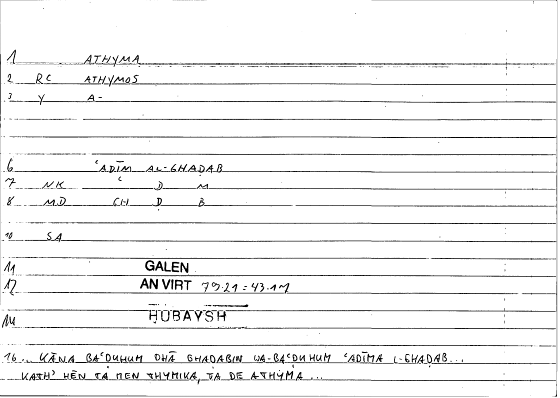 1 ATHYMA
2 RC ATHYMOS
3 Y A-
6 ʿADĪM AL-GHADAB
7 NK ʿ D M
8 MD GH D B
10 SA
11 GALEN
12 AN VIRT 79.21 = 43.17
14 ḤUBAYSH
16 ... KĀNA BAʿDUHUM DHĀ GHADABIN WA-BAʿDUHUM ʿADĪMA L-GHADAB...
KATHʾ HĒN TA MEN THYMIKA, TA DE ATHYMA ...